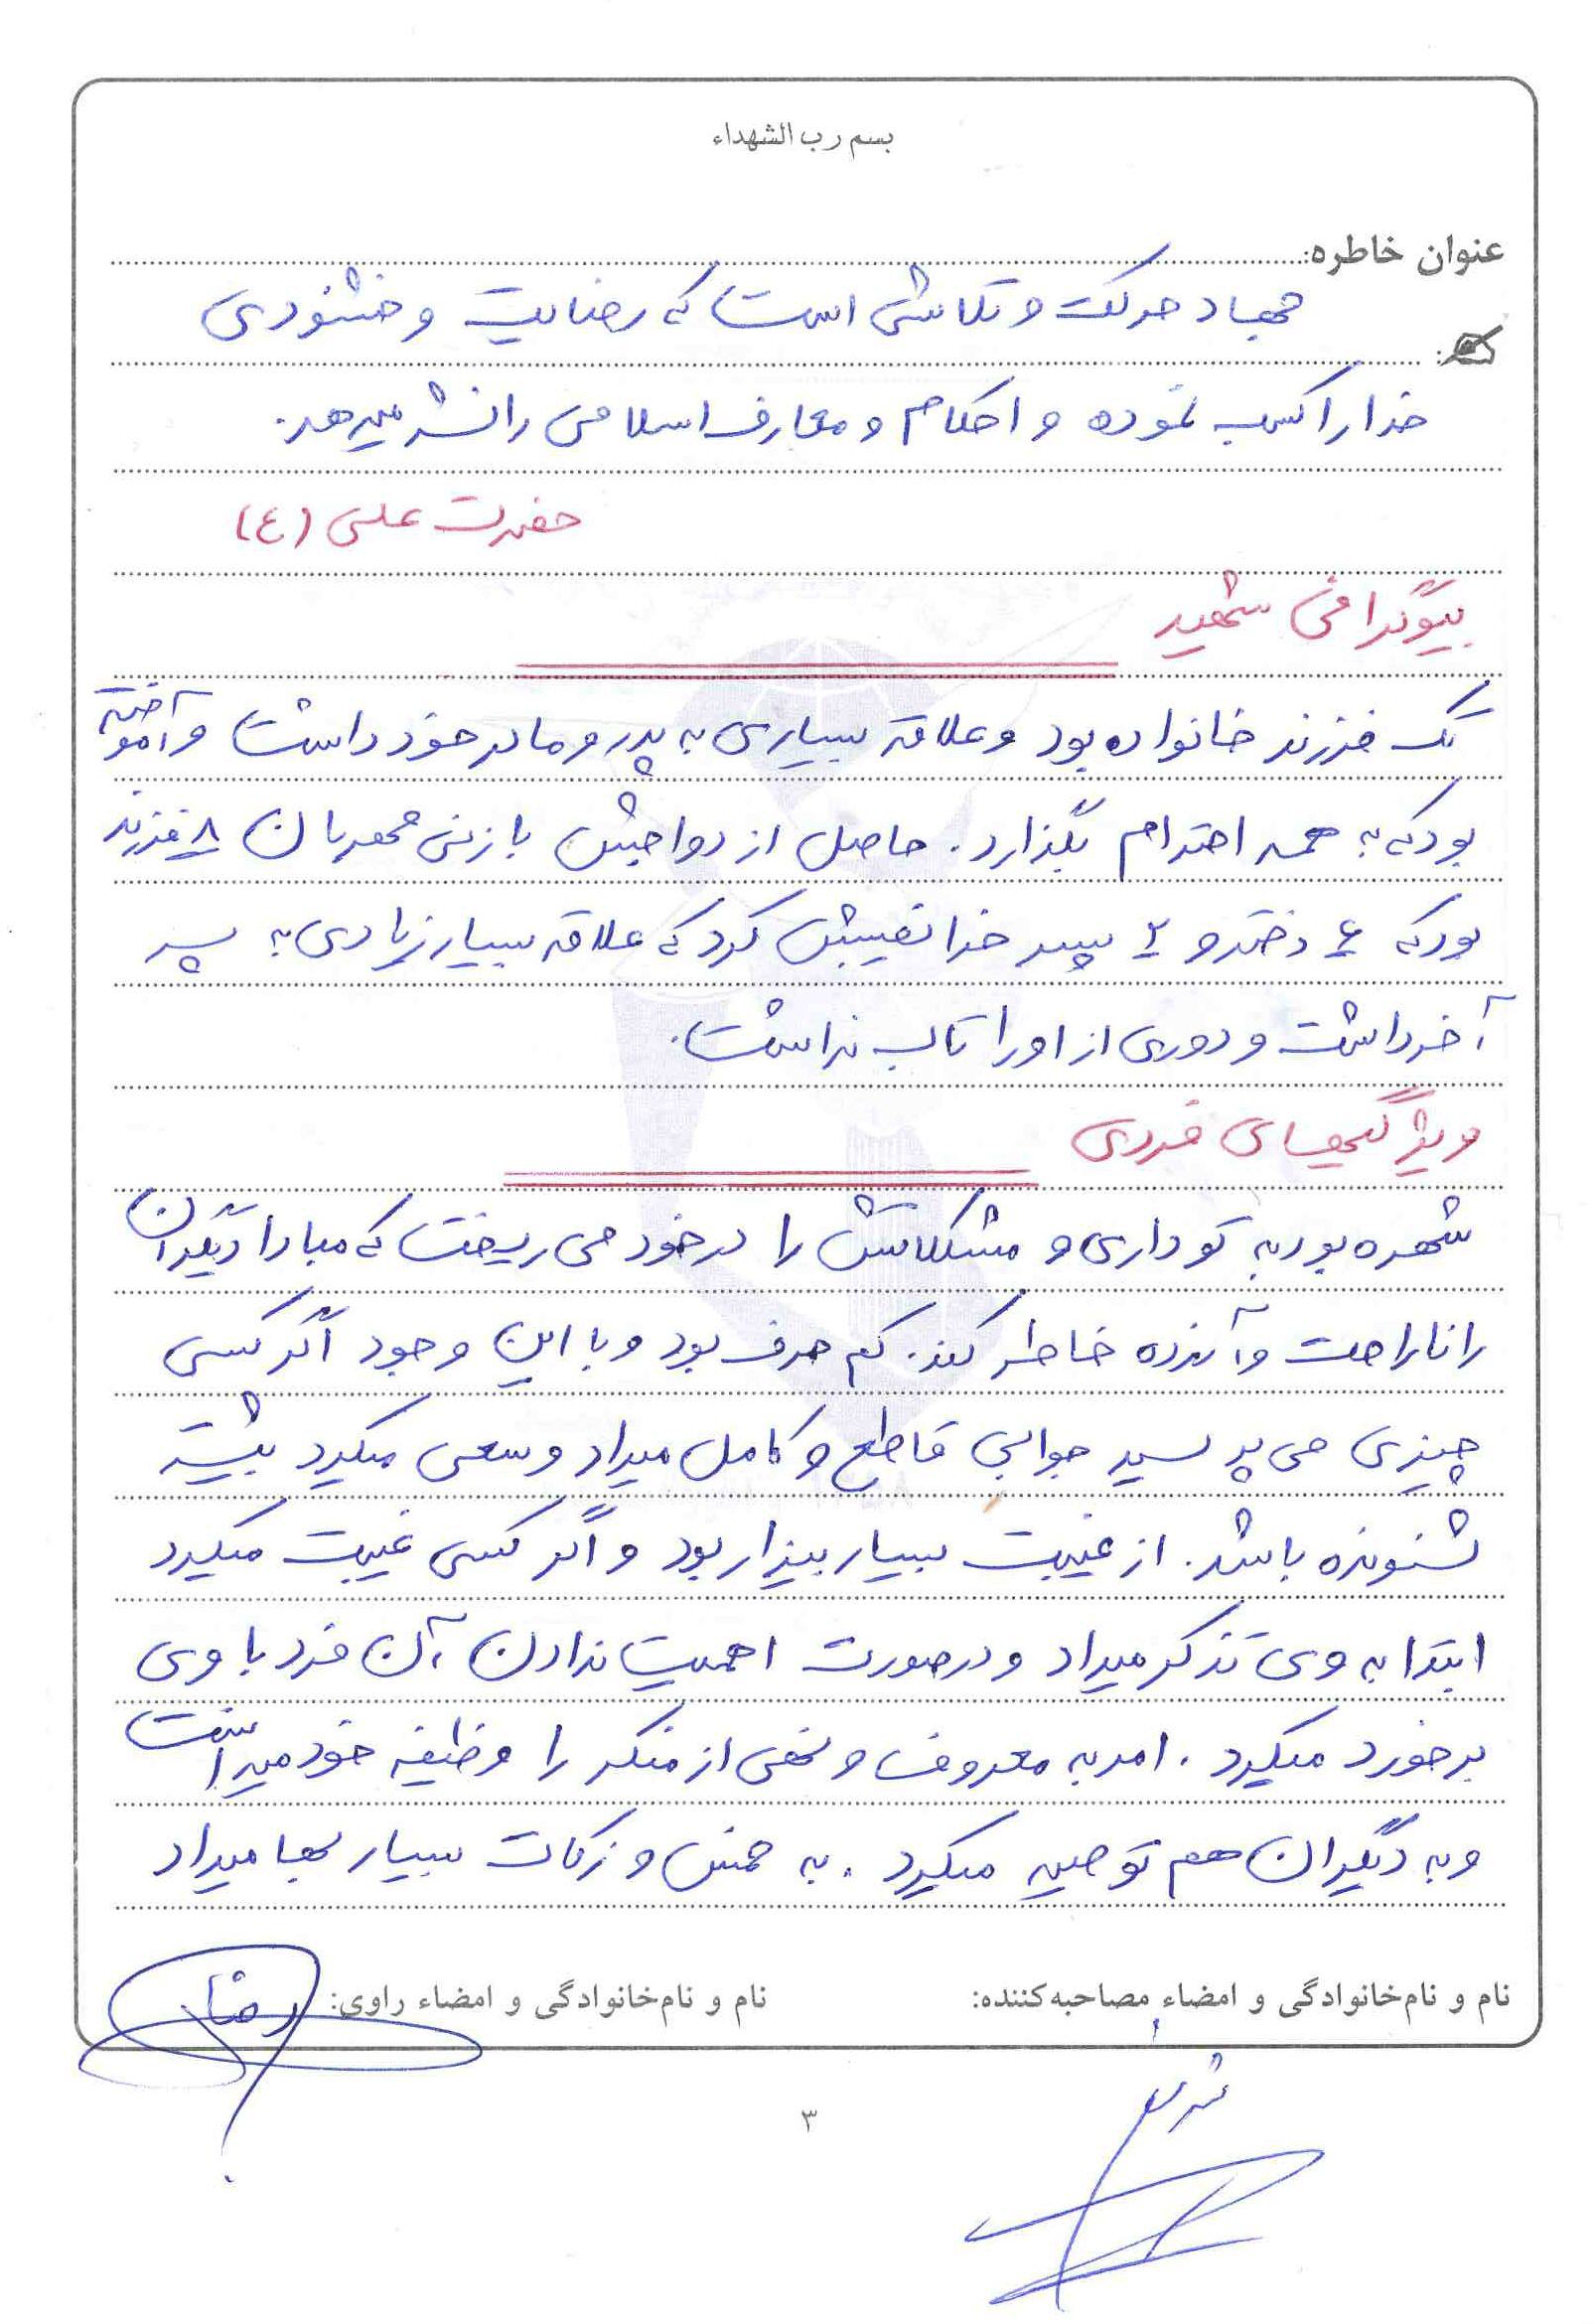 بسم رب الشهداء
عنوان خاطره:
جهاد حرکت و تلاشی است که رضایت و خشنودی
خدا را کسب نموده و احکام و معارف اسلامی را نشر میدهد.
حضرت علی (ع)
بیوگرافی شهید
تک فرزند خانواده بود و علاقه بسیاری به پدر و مادر خود داشت و آموخته
بود که به همه احترام بگذارد. حاصل ازدواجش با زنی مهربان ۸ فرزند
بود که ۶ دختر و ۲ پسر خدا نصیبش کرد که علاقه بسیار زیادی به پسر
آخر داشت و دوری از او را تاب نداشت.
ویژگیهای فردی
شهره بود به تو داری و مشکلاتش را در خود می ریخت که مبادا دیگران
را ناراحت و آزرده خاطر کند. کم حرف بود و با این وجود اگر کسی
چیزی می پرسید جوابی قاطع و کامل میداد و سعی میکرد بیشتر
شنونده باشد. از غیبت بسیار بیزار بود و اگر کسی غیبت میکرد
ابتدا به وی تذکر میداد و در صورت اهمیت ندادن آن فرد با وی
برخورد میکرد. امر به معروف و نهی از منکر را وظیفه خود میدانست
و به دیگران هم توصیه میکرد. به خمس و زکات بسیار بها میداد
نام و نام‌خانوادگی و امضاء مصاحبه‌کننده:
نام و نام‌خانوادگی و امضاء راوی: رضا
۳